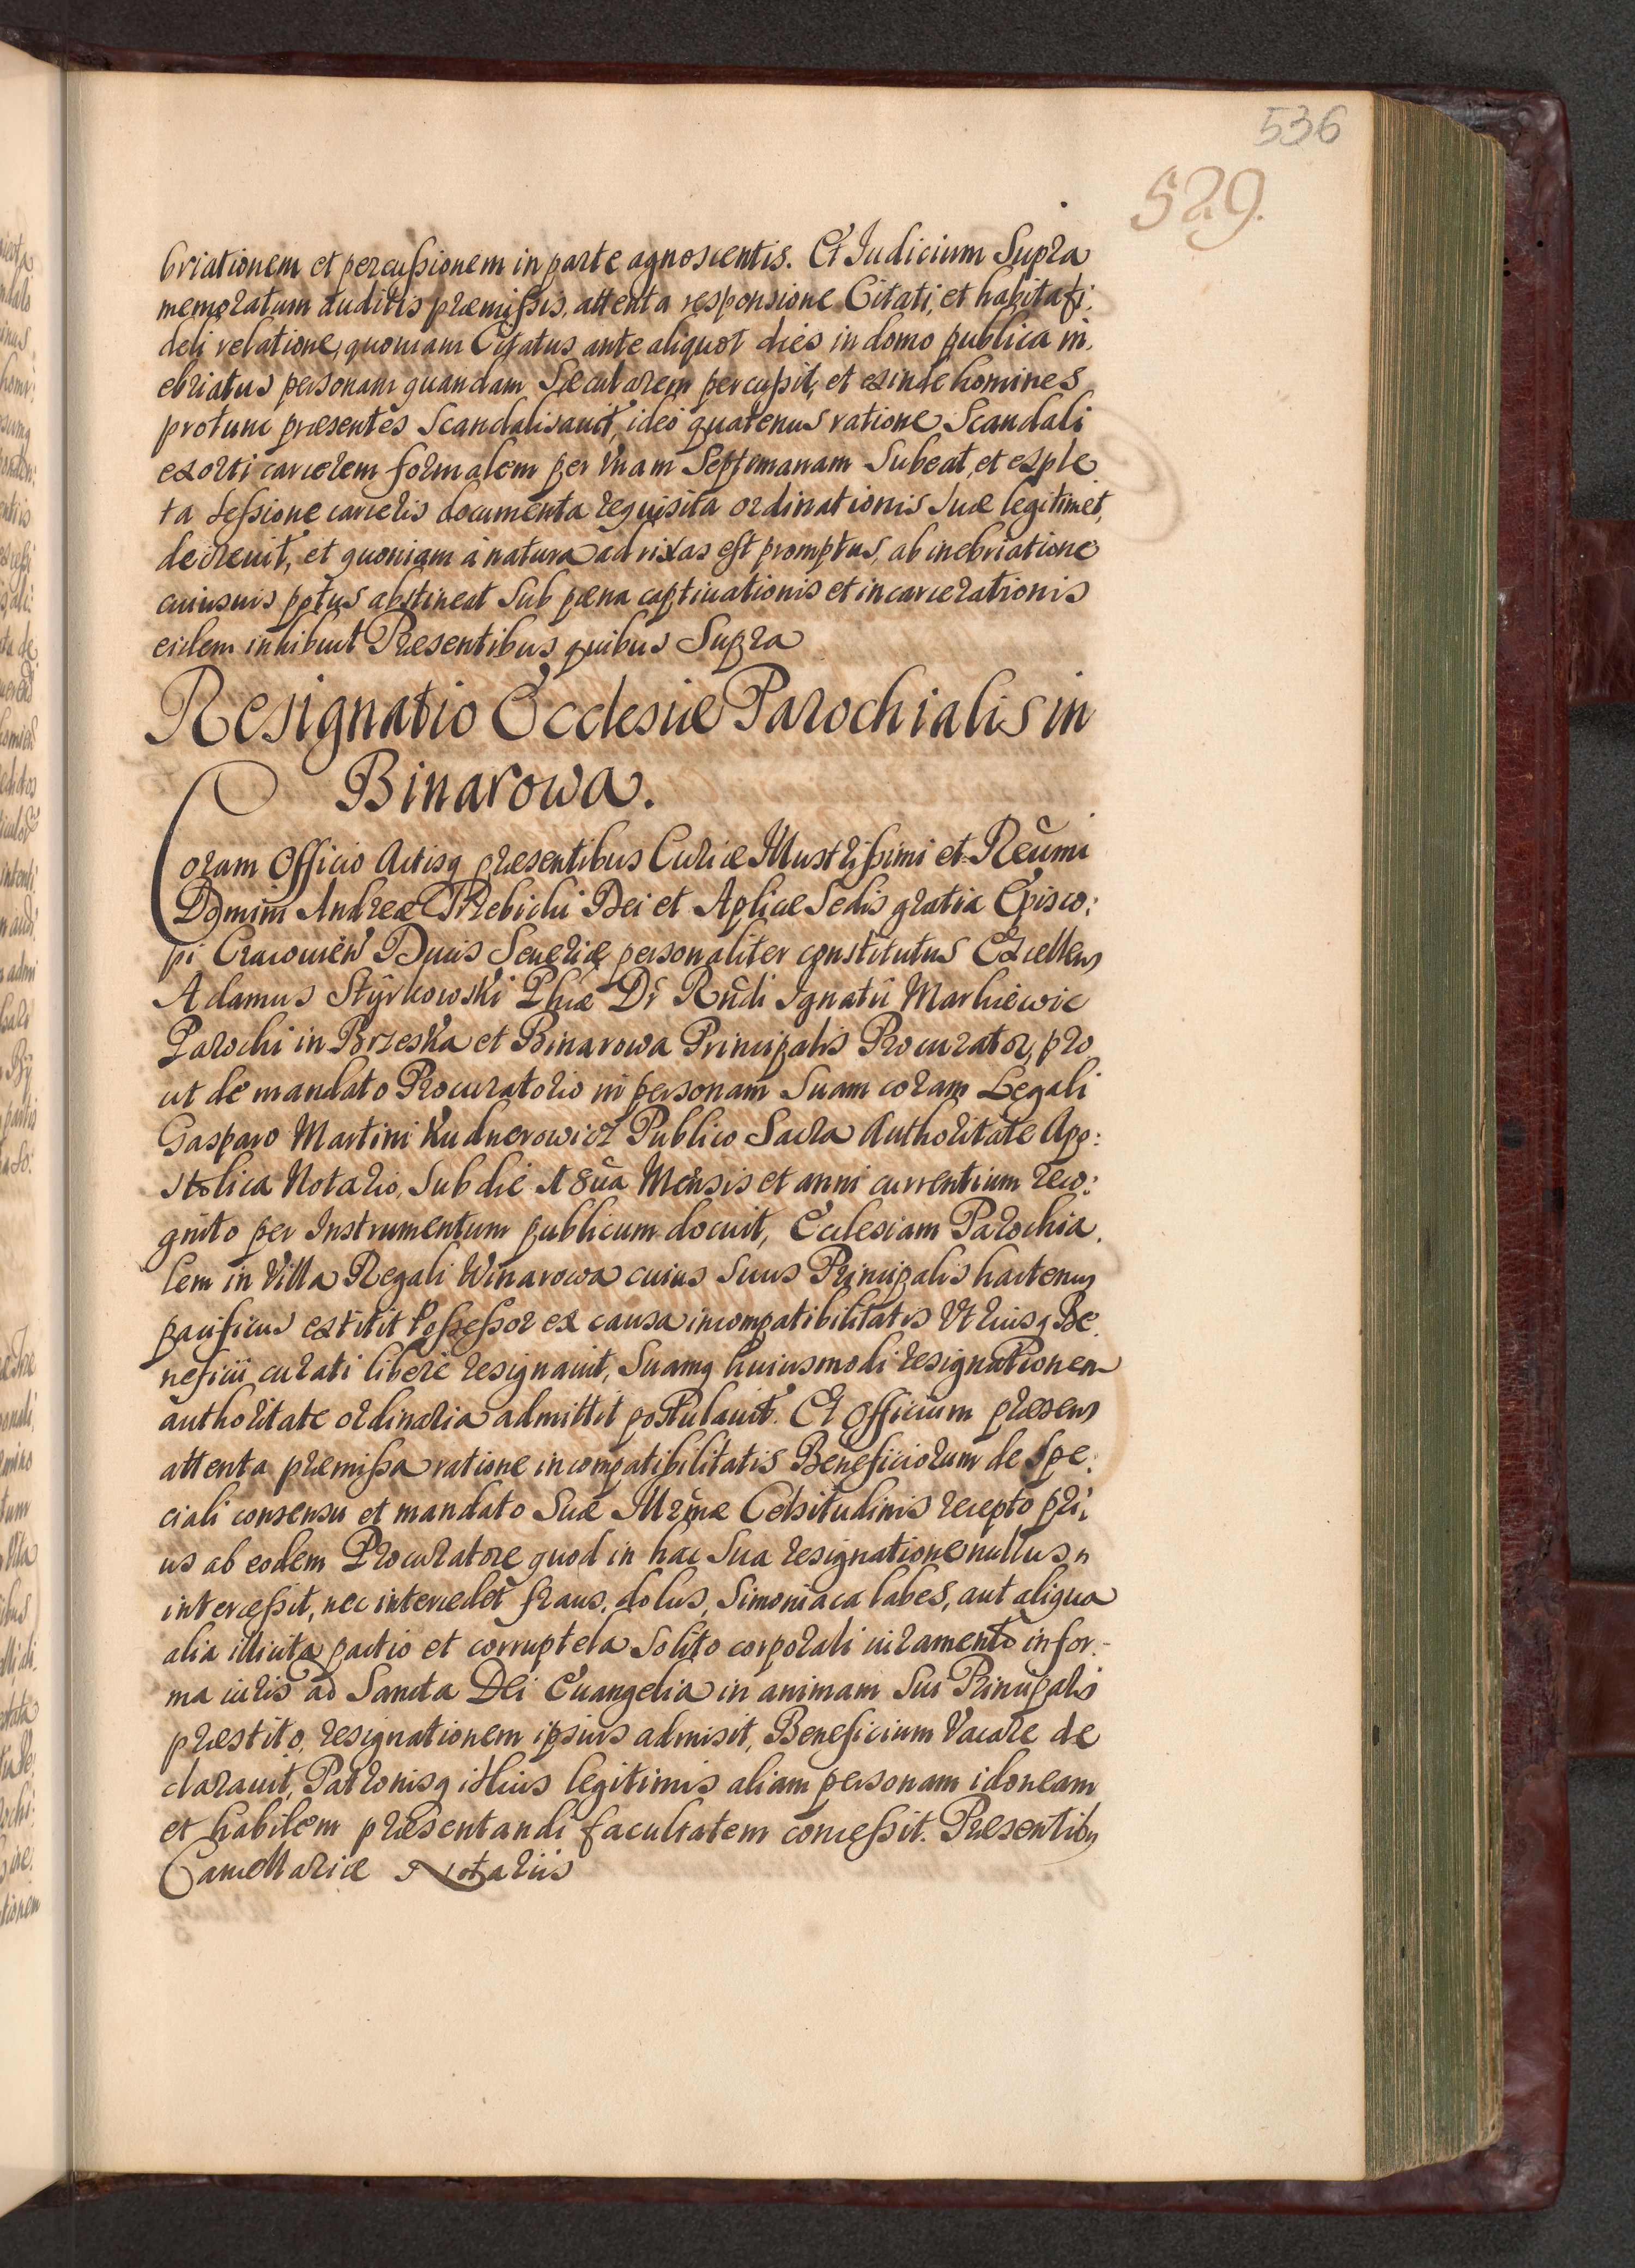 536
529.
briationem et percussionem in parte agnoscentis. Et Iudicium Supra
memoratum auditis præmissis, attenta responsione Citati, et habita fi:
deli relatione, quoniam Citatus ante aliquot dies in domo publica in,
ebriatus personam quandam Sæcularem percussit, et exinde homines
protunc præsentes Scandalisauit, ideo quatenus ratione Scandali
exorti carcerem formalem per Vnam Septimanam Subeat, et exple
ta sessione carceris documenta requisita ordinationis Suæ legitimet,
decreuit, et quoniam à natura ad rixas est promptus, ab inebriatione
cuiusuis potus abstineat Sub pœna captiuationis et incarcerationis
eidem inhibuit Præsentibus quibus Supra
Resignatio Ecclesiæ Parochialis in
Binarowa.
Coram Officio Actisq præsentibus Curiæ Illustrissimi et Reūmi
Domini Andreæ Trzebicki Dei et Aplicæ Sedis gratia Episco:
pi Cracouien Ducis Seueriæ personaliter constitutus Excellens
Adamus Styrkowski Phiæ Dr Rndi Ignatii Markiewic
Parochi in Brzeska et Binarowa Principalis Procurator, pro
ut de mandato Procuratorio in personam Suam coram Legali
Gasparo Martini Kudnerowicz Publico Sacra Authoritate Apo:
stolica Notario, Sub die 18ua Mensis et anni currentium reco:
gnito per Instrumentum publicum docuit, Ecclesiam Parochia,
lem in Villa Regali Winarowa cuius Suus Principalis hactenus
pacificus extitit Possessor ex causa incompatibilitatis Vtriusq Be,
neficii curati libere resignauit, Suamq huiusmodi resignationem
authoritate ordinaria admittit postulauit. Et Officium præsens
attenta præmissa ratione incompatibilitatis Beneficiorum de Spe:
ciali consensu et mandato Suæ Illrmæ Celsitudinis recepto pri,
us ab eodem Procuratore quod in hac Sua resignatione nullus n
intercessit, nec intercedet fraus, dolus, Simoniaca labes, aut aliqua
alia illicita pactio et corruptela Solito corporali iuramento in for-
ma iuris ad Sancta Dei Euangelia in animam Sui Principalis
præstito, resignationem ipsius admisit, Beneficium Vacare de
clarauit, Patronisq illius legitimis aliam personam idoneam
et habilem præsentandi facultatem concessit. Præsentibus
Cancellariæ Notariis